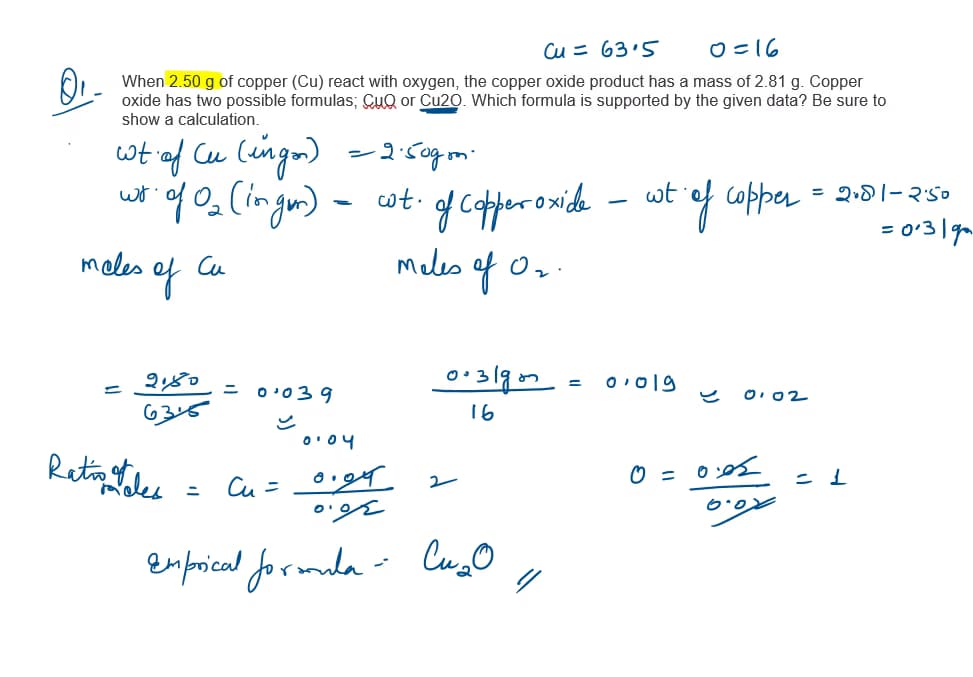 Cu = 63.5 O = 16
Q1- When 2.50 g of copper (Cu) react with oxygen, the copper oxide product has a mass of 2.81 g. Copper
oxide has two possible formulas; CuO or Cu2O. Which formula is supported by the given data? Be sure to
show a calculation.
wt. of Cu (in gm) = 2.50gm.
wt. of O2 (in gm) = wt. of Copper oxide - wt. of copper = 2.81-2.50
= 0.31gm
moles of Cu moles of O2.
= 2.50/63.5 = 0.039 0.31gm/16 = 0.019 ≃ 0.02
≃ 0.04
Ratio of moles = Cu = 0.04/0.02 2 O = 0.02/0.02 = 1
Emprical formula = Cu2O //